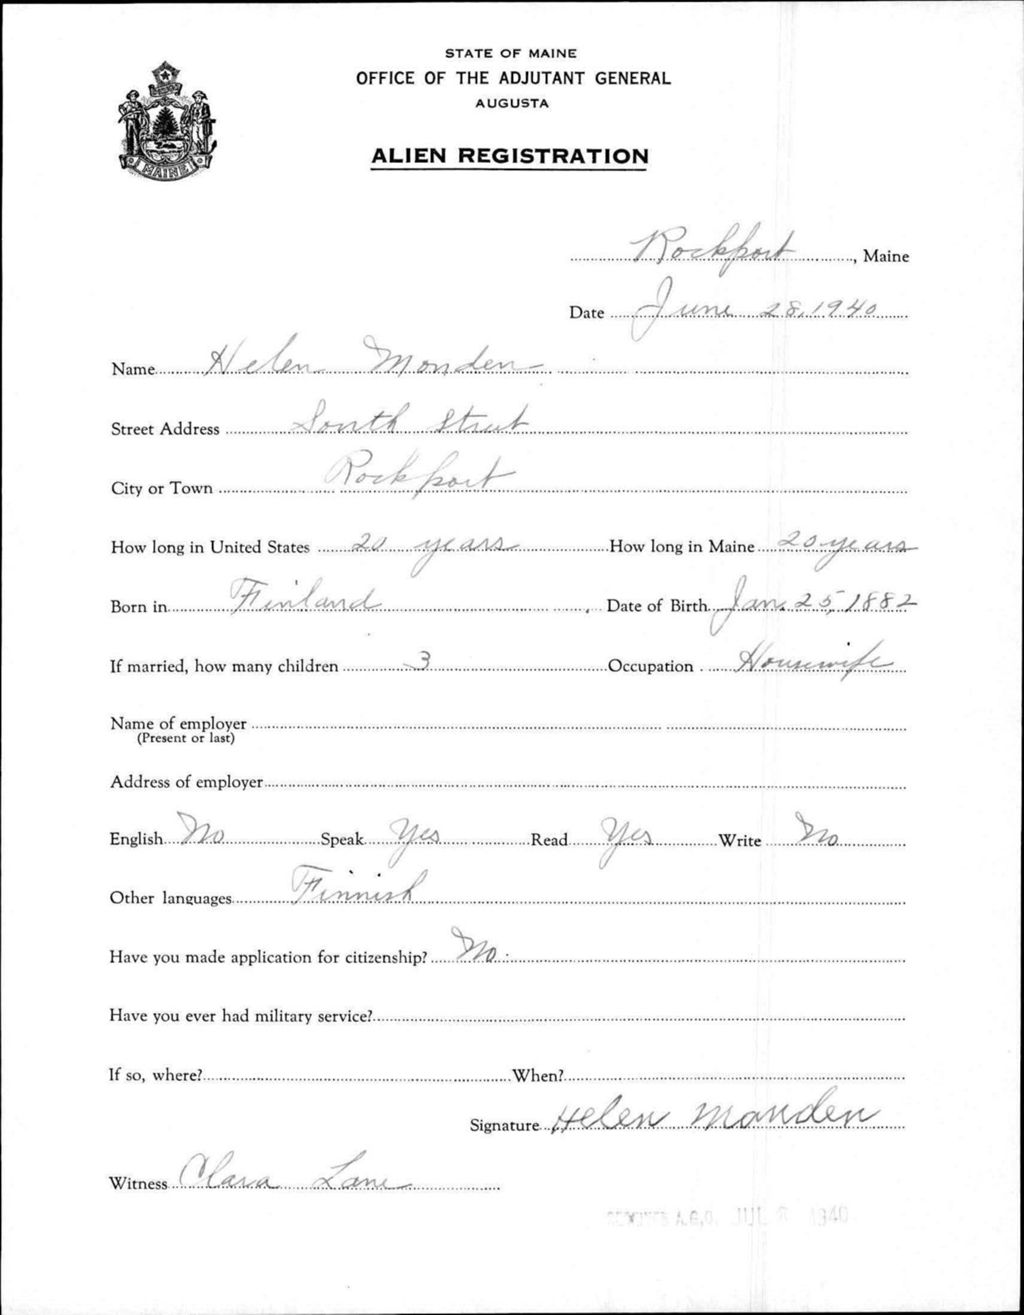 STATE OF MAINE
OFFICE OF THE ADJUTANT GENERAL
AUGUSTA
MAINE
ALIEN REGISTRATION
Rockport, Maine
Date June 28, 1940
Name Helen Monden
Street Address South Street
City or Town Rockport
How long in United States 20 years How long in Maine 20 years
Born in Finland Date of Birth Jan. 25, 1882
If married, how many children 3 Occupation Housewife
Name of employer
(Present or last)
Address of employer
English No Speak Yes Read Yes Write No
Other languages Finnish
Have you made application for citizenship? No
Have you ever had military service?
If so, where? When?
Signature Helen Manden
Witness Clara Lane
A.G.O. JUL 1940